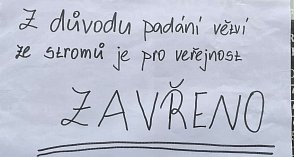 Z důvodu padání větví
ze stromů je pro veřejnost
ZAVŘENO